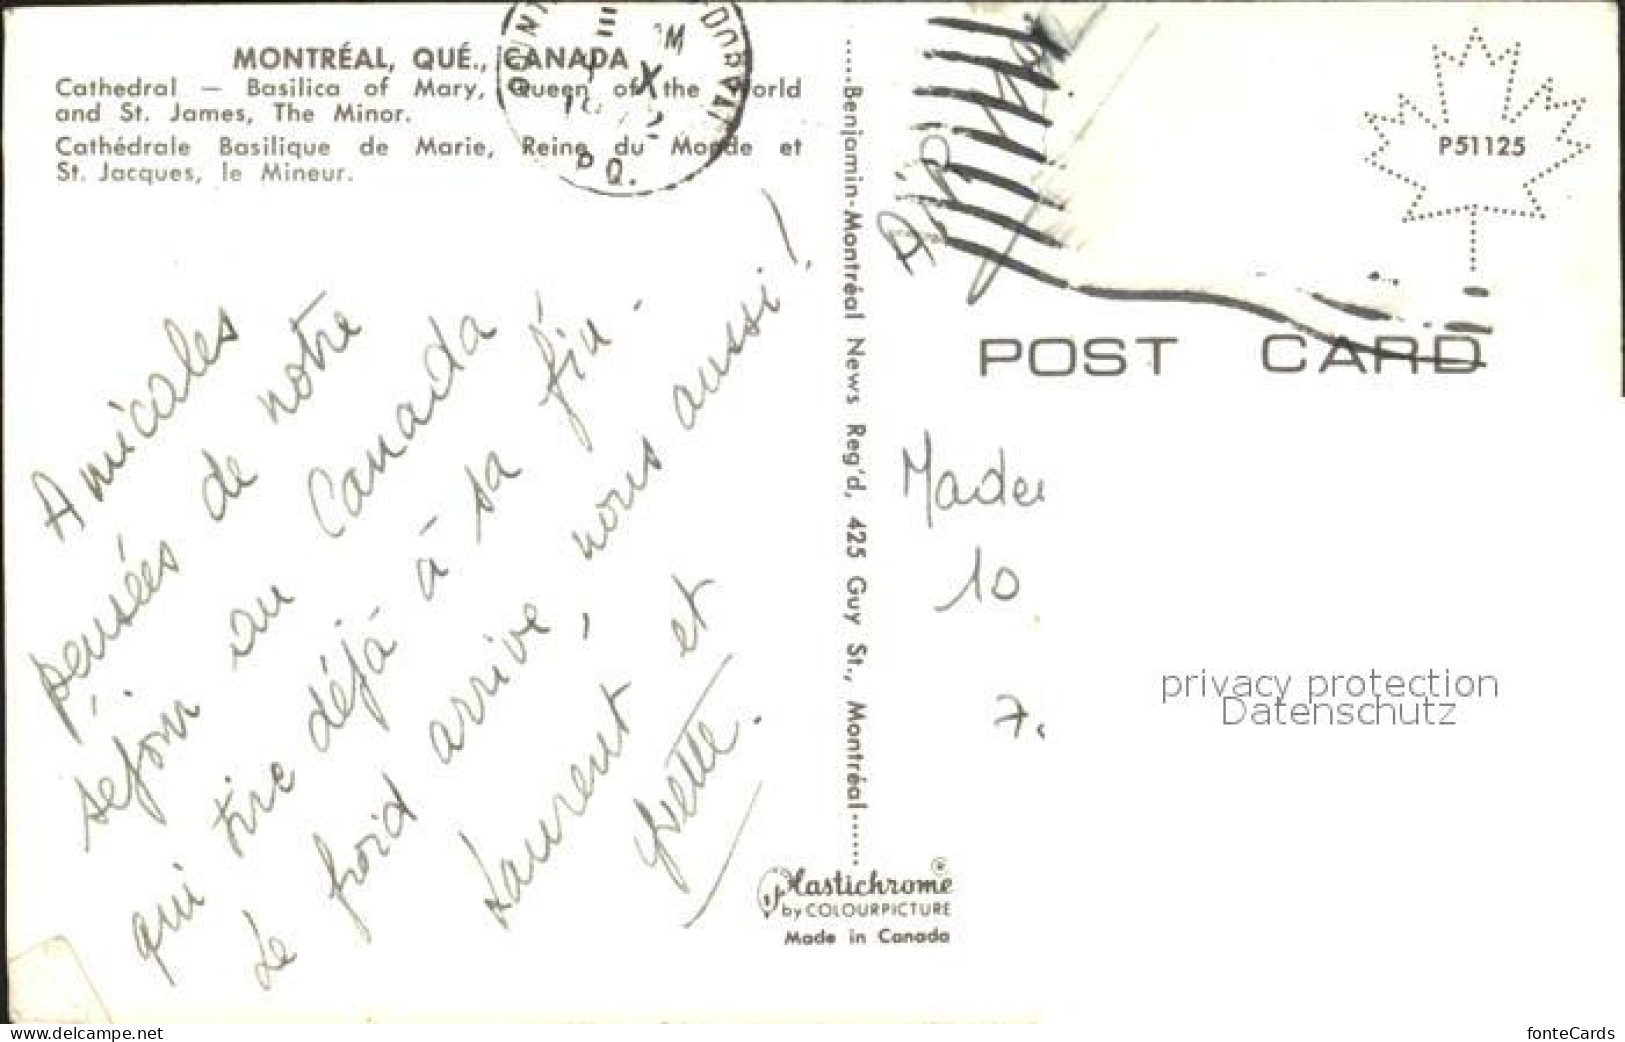 MONTRÉAL, QUÉ., CANADA
Cathedral — Basilica of Mary, Queen of the World
and St. James, The Minor.
Cathédrale Basilique de Marie, Reine du Monde et
St. Jacques, le Mineur.
DORVAL
P.Q.
Amicales
pensées de notre
séjour au Canada
qui tire déjà à sa fin.
Le froid arrive, nous aussi!
Laurent et
Yvette.
.....Benjamin-Montréal News Reg'd, 425 Guy St., Montréal......
Plastichrome®
by COLOURPICTURE
Made in Canada
P51125
POST CARD
10
privacy protection
Datenschutz
www.delcampe.net
fonteCards